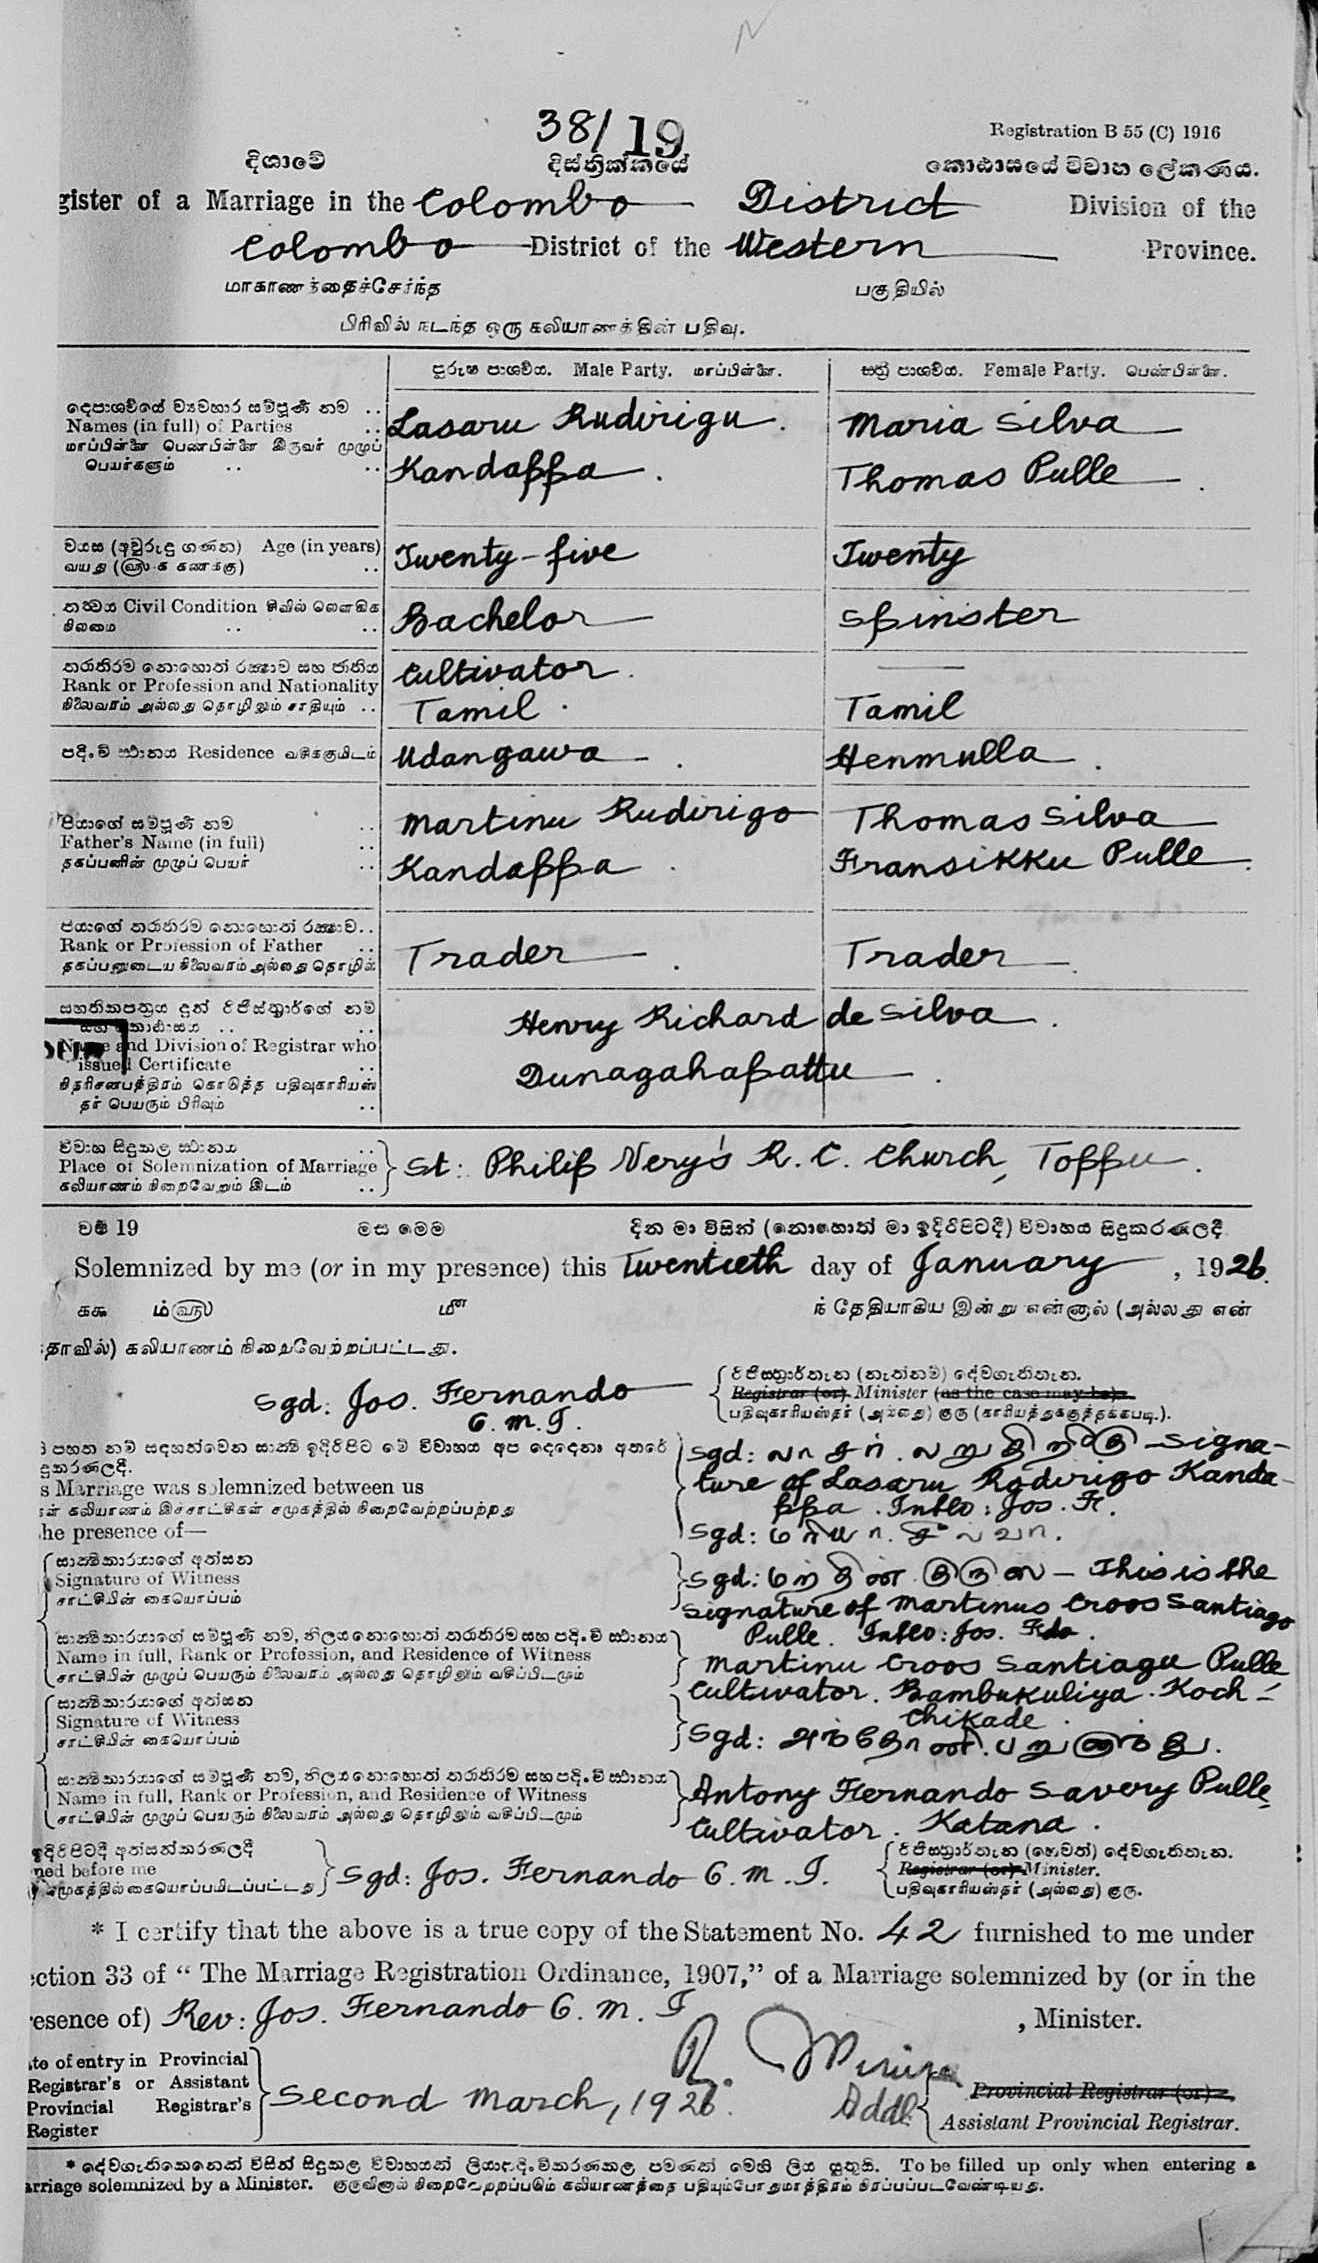 38/19
Registration B 55 (C) 1916
දිශාවේ දිස්ත්‍රික්කයේ කොඨාසයේ විවාහ ලේකණය.
gister of a Marriage in the Colombo District Division of the
Colombo District of the Western Province.
மாகாணத்தைச்சேர்ந்த பகுதியில்
பிரிவில் நடந்த ஒரு கலியாணத்தின் பதிவு.
පුරුෂ පාශව්ය. Male Party. மாப்பிள்ளை. ස්ත්‍රී පාශව්ය. Female Party. பெண்பிள்ளை.
දෙපාශව්යේ ව්‍යවහාර සම්පූණී නම ..
Names (in full) of Parties .. Lasaru Rudirigu. Maria Silva
மாப்பிள்ளை பெண்பிள்ளை இருவர் முழுப்
பெயர்களும் .. .. Kandappa. Thomas Pulle.
වයස (අවුරුදු ගණන) Age (in years) Twenty-five Twenty
வயது (வருடக் கணக்கு) ..
තත්වය Civil Condition சிவில் லௌகிக Bachelor Spinster
நிலமை .. ..
තරාතිරම නොහොත් රක්ෂාව සහ ජාතිය Cultivator.
Rank or Profession and Nationality
நிலைவரம் அல்லது தொழிலும் சாதியும் .. Tamil. Tamil
පදිංචි ස්ථානය Residence வசிக்குமிடம் Udangawa. Henmulla.
පියාගේ සම්පූණී නම .. Martinu Rudirigo Thomas Silva
Father's Name (in full) ..
தகப்பனின் முழுப் பெயர் .. Kandappa. Fransikku Pulle.
පියාගේ තරාතිරම නොහොත් රක්ෂාව..
Rank or Profession of Father .. Trader. Trader.
தகப்பனுடைய நிலைவரம் அல்லது தொழில்
සහතිකපත්‍රය දුන් රිජිස්ත්‍රාර්ගේ නම Henry Richard de Silva.
සහ කොඨාසය .. ..
Name and Division of Registrar who
issued Certificate .. Dunagahapattu.
சிதரிசனபத்திரம் கொடுத்த பதிவுகாரியஸ்
தர் பெயரும் பிரிவும் ..
විවාහ සිදුකල ස්ථානය ..
Place of Solemnization of Marriage St: Philip Nery's R. C. Church, Toppu.
கலியாணம் நிறைவேறும் இடம் ..
වර්‍ෂ 19 මස මෙම දින මා විසින් (නොහොත් මා ඉදිරිපිටදී) විවාහය සිදුකරණලදී
Solemnized by me (or in my presence) this Twentieth day of January, 1926.
ககூ ம்ஹு மீ ந் தேதியாகிய இன்று என்னால் (அல்லது என்
தாவில்) கலியாணம் நிறைவேற்றப்பட்டது.
Sgd: Jos. Fernando
රිජිස්ත්‍රාර්තැන (නැත්නම්) දේවගැතිතැන.
O. M. I. Registrar (or) Minister (as the case may be).
பதிவுகாரியஸ்தர் (அல்லது) குரு (காரியத்துக்குத்தக்கபடி.).
පහත නම් සඳහන්වෙන සාක්‍ෂි ඉදිරිපිට මේ විවාහය අප දෙදෙනා අතරේ
දුකරණලදී.
s Marriage was solemnized between us
கள் கலியாணம் இச்சாட்சிகள் சமுகத்தில் நிறைவேற்றப்பற்றது
he presence of—
Sgd: லாசரு. லறுதிறிகு — Signa-
ture of Lasaru Rodirigo Kanda-
ppa. Intld: Jos. F.
Sgd: மரியா. சில்வா.
සාක්‍ෂිකාරයාගේ අත්සන
Signature of Witness
சாட்சியின் கையொப்பம்
Sgd: மற்தீன் குருஸ் — This is the
signature of Martinus Croos Santiago
Pulle. Intld: Jos. Fdo.
සාක්‍ෂිකාරයාගේ සම්පූණී නම, නිලය නොහොත් තරාතිරම සහ පදිංචි ස්ථානය
Name in full, Rank or Profession, and Residence of Witness
சாட்சியின் முழுப் பெயரும் நிலைவரம் அல்லது தொழிலும் வசிப்பிடமும்
Martinu Croos Santiagu Pulle
Cultivator. Bambukuliya. Koch-
chikade.
සාක්‍ෂිකාරයාගේ අත්සන
Signature of Witness
சாட்சியின் கையொப்பம்
Sgd: அந்தோனி. பறுனாந்து.
සාක්‍ෂිකාරයාගේ සම්පූණී නම, නිලය නොහොත් තරාතිරම සහ පදිංචි ස්ථානය
Name in full, Rank or Profession, and Residence of Witness
சாட்சியின் முழுப் பெயரும் நிலைவரம் அல்லது தொழிலும் வசிப்பிடமும்
Antony Fernando Savery Pulle,
Cultivator. Katana.
ඉදිරිපිටදී අත්සන්කරණලදී
ned before me Sgd: Jos. Fernando O. M. I.
சமுகத்தில் கையொப்பமிடப்பட்டது
රිජිස්ත්‍රාර්තැන (හෙවත්) දේවගැතිතැන.
Registrar (or) Minister.
பதிவுகாரியஸ்தர் (அல்லது) குரு.
* I certify that the above is a true copy of the Statement No. 42 furnished to me under
ection 33 of “ The Marriage Registration Ordinance, 1907,” of a Marriage solemnized by (or in the
resence of) Rev: Jos. Fernando O. M. I , Minister.
te of entry in Provincial
Registrar's or Assistant
Provincial Registrar's
Register
Second March, 1926.
Addl. Provincial Registrar (or)
Assistant Provincial Registrar.
* දේවගැතිකෙනෙක් විසින් සිදුකල විවාහයක් ලියාපදිංචිකරණකල පමණක් මෙහි ලිය යුතුයි. To be filled up only when entering a
arriage solemnized by a Minister. குருவினால் நிறைவேற்றப்படும் கலியாணத்தை பதியும்போதுமாத்திரம் நிரப்பப்படவேண்டியது.